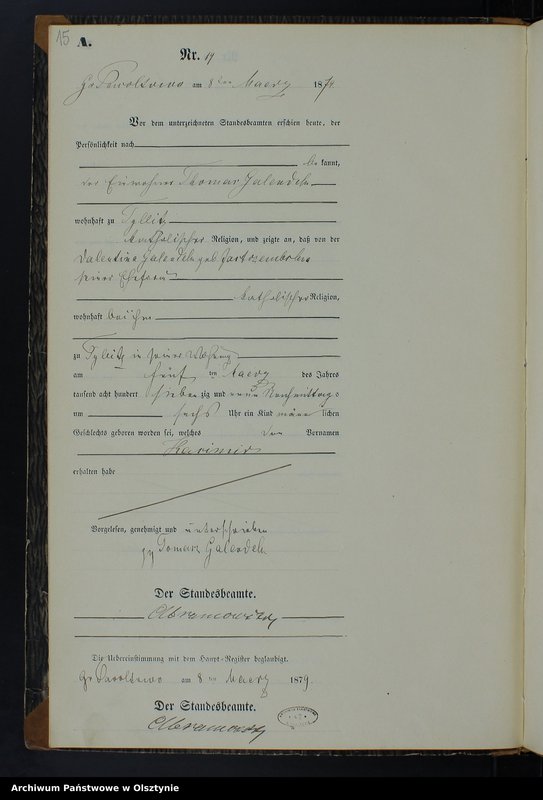 15
A.
Nr. 19
Gr. Pacoltowo am 8ten Maerz 1879.
Vor dem unterzeichneten Standesbeamten erschien heute, der
Persönlichkeit nach
be kannt,
der Einwohner Thomas
wohnhaft zu Tyllitz
katholischer Religion, und zeigte an, daß von der
Valentina geb.
seiner Ehefrau
katholischer Religion,
wohnhaft bei ihm
zu Tyllitz in seiner Wohnung
am fünf ten Maerz des Jahres
tausend acht hundert sieben zig und neun Nachmittags
um sechs Uhr ein Kind männ lichen
Geschlechts geboren worden sei, welches den Vornamen
Kasimir
erhalten habe
Vorgelesen, genehmigt und unterschrieben
gz Tomarz
Der Standesbeamte.
Die Uebereinstimmung mit dem Haupt-Register beglaubigt.
Gr. Pacoltowo am 8ten Maerz 1879.
Der Standesbeamte.
Archiwum Państwowe w Olsztynie